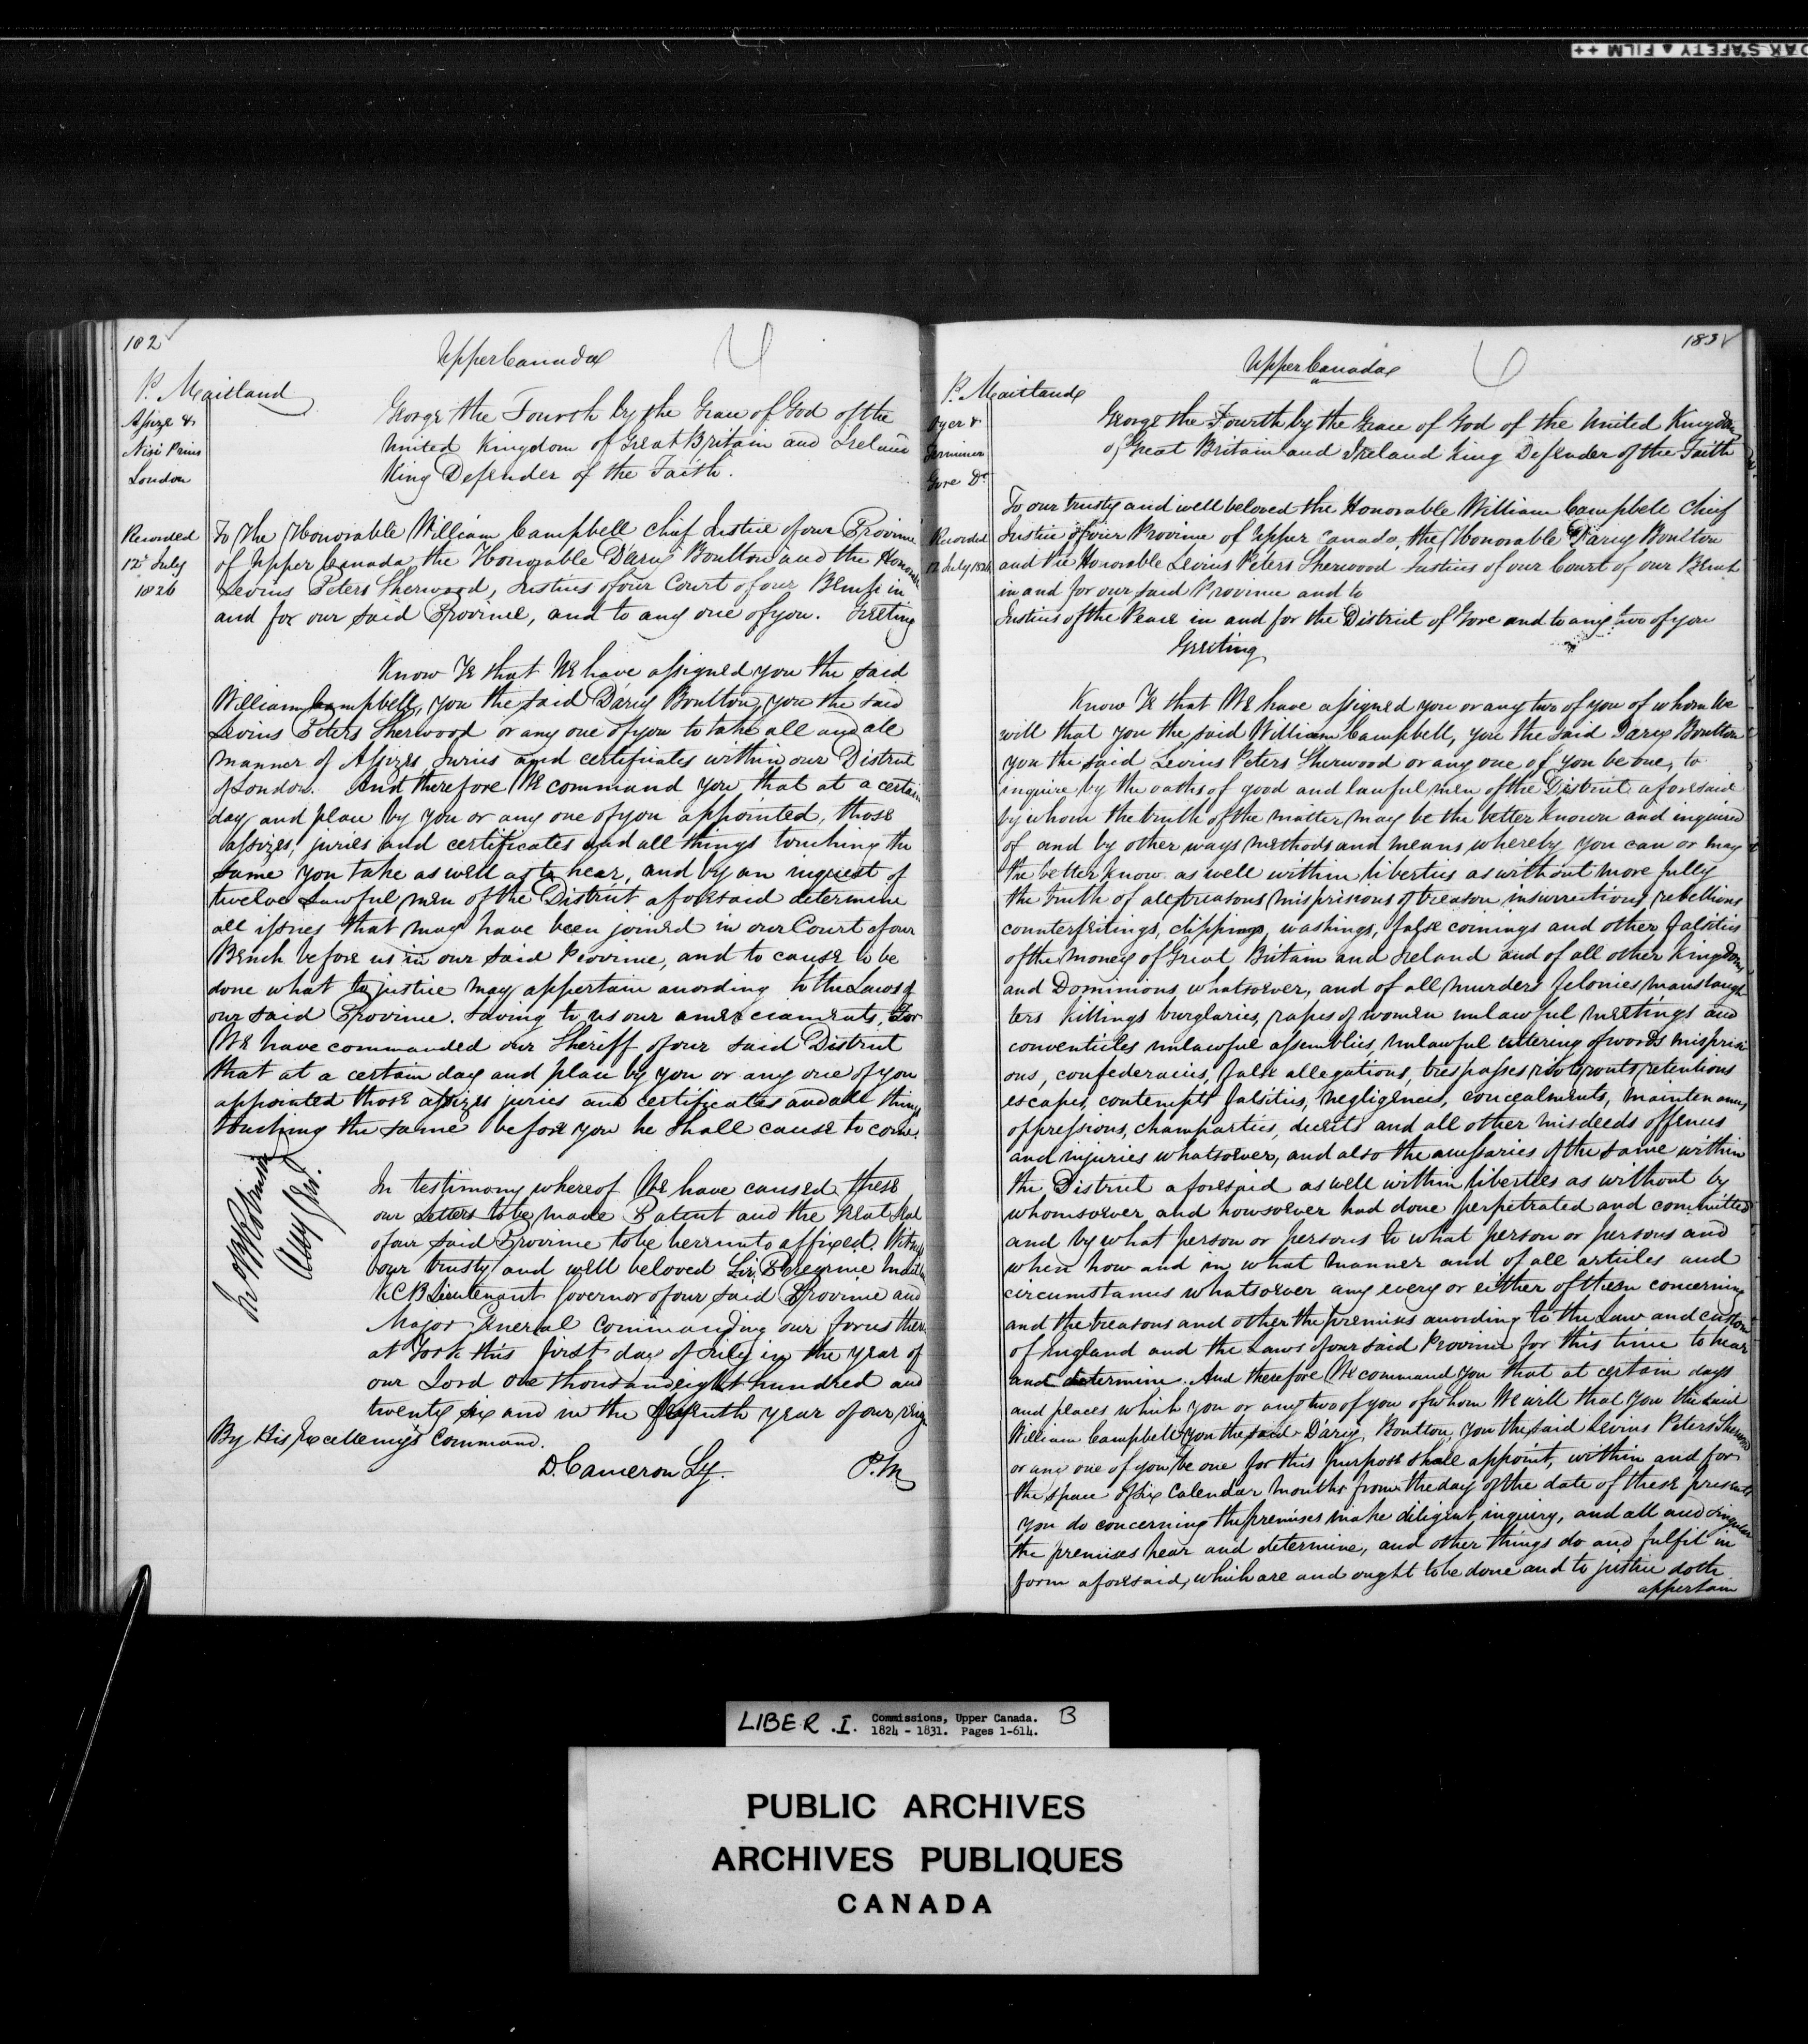 182
Upper Canada
P. Maitland
Assize &
Nisi Prius
London
Recorded
12th July
1826
George the Fourth by the Grace of God of the
United Kingdom of Great Britain and Ireland
King Defender of the Faith.
To The Honorable William Campbell Chief Justice of our Province
of Upper Canada the Honorable D'arcy Boulton and the Honorable
Levius Peters Sherwood, Justices of our Court of our Bench in
and for our said Province, and to any one of you. Greeting
Know Ye that We have assigned you the said
William Campbell, you the said D'arcy Boulton, you the said
Levius Peters Sherwood or any one of you to take all and all
manner of Assizes Juries and certificates within our District
of London. And therefore We command you that at a certain
day and place by you or any one of you appointed, those
assizes, juries and certificates and all things touching the
same you take as well as to hear, and by an inquest of
twelve Lawful men of the District aforesaid determine
all issues that may have been joined in our Court of our
Bench before us in our said Province, and to cause to be
done what to justice may appertain according to the Laws of
our said Province. Saving to us our amerciaments, For
We have commanded our Sheriff of our said District
that at a certain day and place by you or any one of you
appointed those assizes juries and certificates and all things
touching the same before you he shall cause to come.
In testimony whereof We have caused these
our Letters to be made Patent and the Great Seal
of our said Province to be hereunto affixed. Witness
our trusty and well beloved Sir Peregrine Maitland
K.C.B Lieutenant Governor of our said Province and
Major General Commanding our forces therein
at York this first day of July in the year of
our Lord one thousand eight hundred and
twenty six and in the seventh year of our reign
Jno B Robinson
Atty Genl.
By His Excellency's Command.
D. Cameron Sy.
P.M
183
Upper Canada
P. Maitland
Oyer &
Terminer
Gore Dt
Recorded
12 July 1826
George the Fourth by the Grace of God of the United Kingdom
of Great Britain and Ireland King Defender of the Faith
To our trusty and well beloved the Honorable William Campbell Chief
Justice of our Province of Upper Canada, the Honorable D'arcy Boulton
and the Honorable Levius Peters Sherwood Justices of our Court of our Bench
in and for our said Province and to
Justices of the Peace in and for the District of Gore and to any two of you
Greeting
Know Ye that We have assigned you or any two of you of whom We
will that you the said William Campbell, you the said Darcy Boulton
you the said Levius Peters Sherwood or any one of you be one, to
inquire by the oaths of good and lawful men of the District aforesaid
by whom the truth of the matter may be the better known and inquired
of and by other ways methods and means whereby you can or may
the better know as well within liberties as without more fully
the truth of all treasons misprisions of treason insurrections rebellions
counterfeitings, clippings, washings, false coinings and other falsities
of the money of Great Britain and Ireland and of all other Kingdoms
and Dominions whatsoever, and of all murders felonies manslaugh
ters Killings burglaries, rapes of women unlawful meetings and
conventicles unlawful assemblies, unlawful uttering of words misprisi
ons, confederacies, false allegations, trespasses riots routs retentions
escapes, contempts falsities, negligences, concealments, maintenances
oppressions, champarties, deceits and all other misdeeds offences
and injuries whatsoever, and also the accessaries of the same within
the District aforesaid as well within liberties as without by
whomsoever and howsoever had done perpetrated and committed
and by what person or persons to what person or persons and
when how and in what manner and of all articles and
circumstances whatsoever any every or either of them concerning
and the treasons and other the premises according to the Law and custom
of England and the Laws of our said Province for this time to hear
and determine. And therefore We command you that at certain days
and places which you or any two of you of whom We will that you the said
William Campbell you the said D'arcy Boulton, you the said Levius Peters Sherwood
or any one of you be one for this purpose shall appoint, within and for
the space of six Calendar months from the day of the date of these presents
you do concerning the premises make diligent inquiry, and all and singular
the premises hear and determine, and other things do and fulfil in
form aforesaid, which are and ought to be done and to justice doth
appertain
LIBER .I. Commissions, Upper Canada. B
1824 - 1831. Pages 1-614.
PUBLIC ARCHIVES
ARCHIVES PUBLIQUES
CANADA